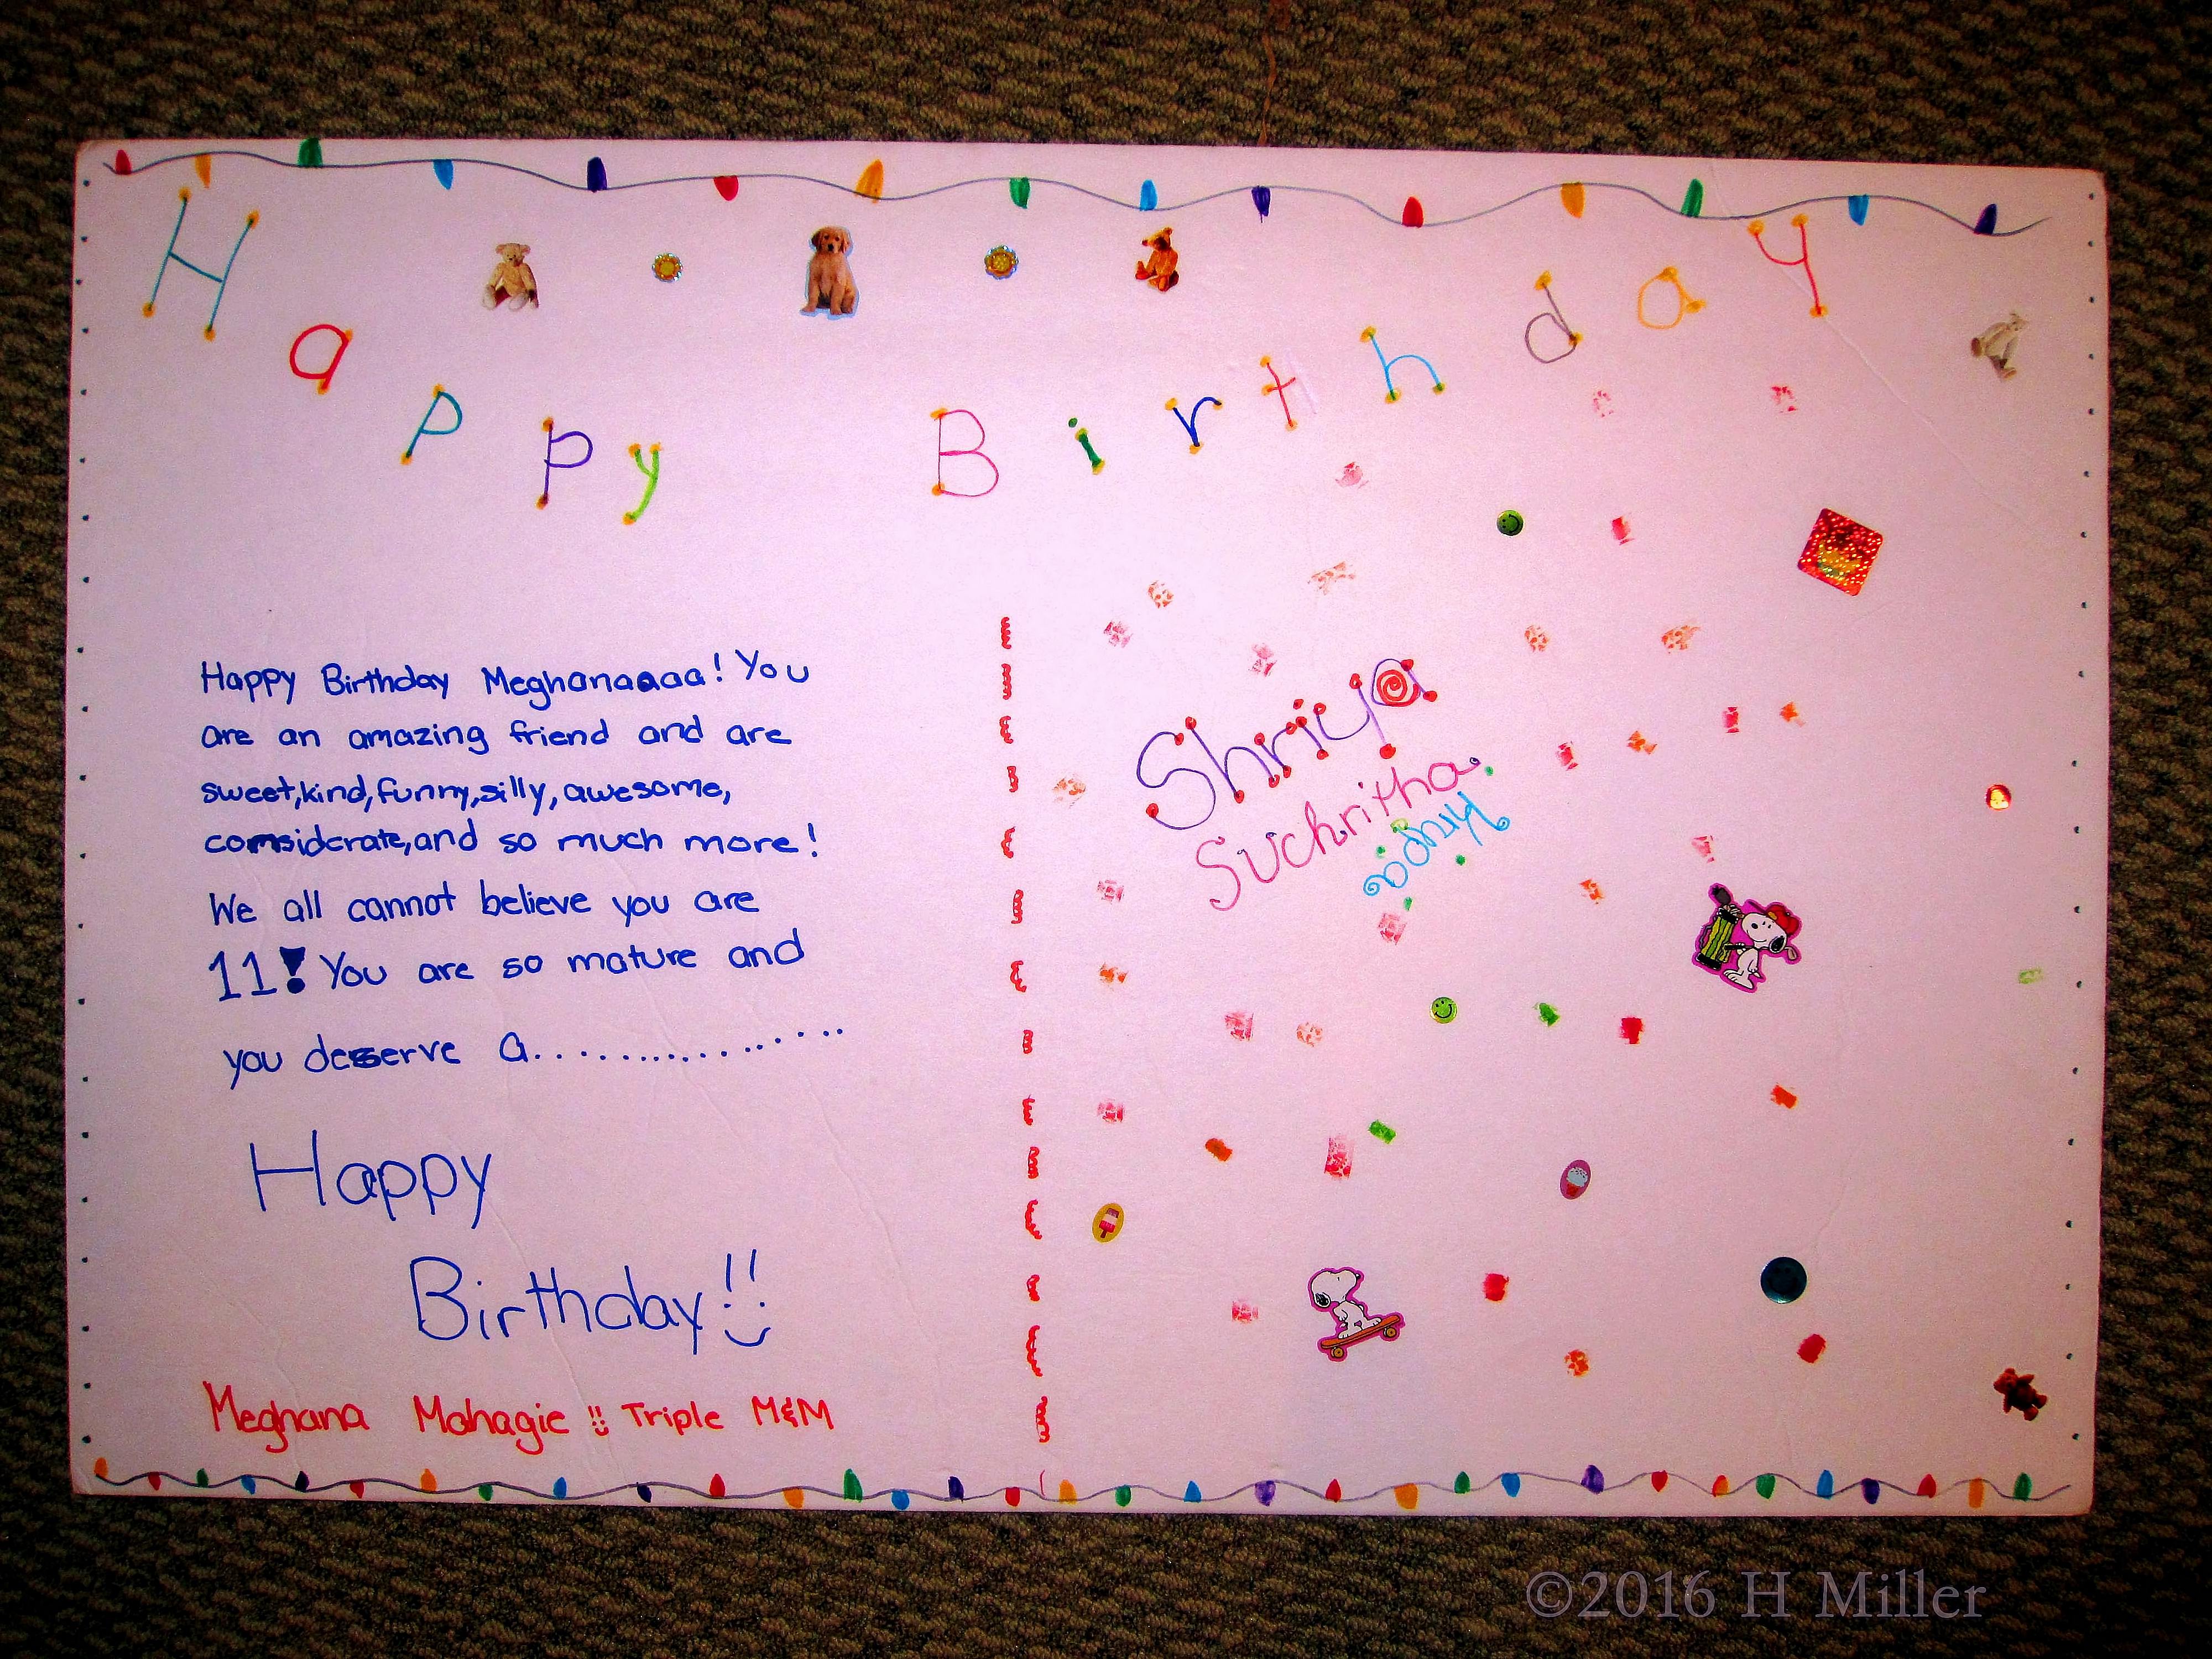 Happy Birthday
Happy Birthday Meghanaaaa! You
are an amazing friend and are
sweet,kind,funny,silly,awesome,
considerate,and so much more!
We all cannot believe you are
11! You are so mature and
you deserve a...............
Happy
Birthday!!
Meghana Mahagie !! Triple M&M
Shriya
Suchritha
©2016 H Miller